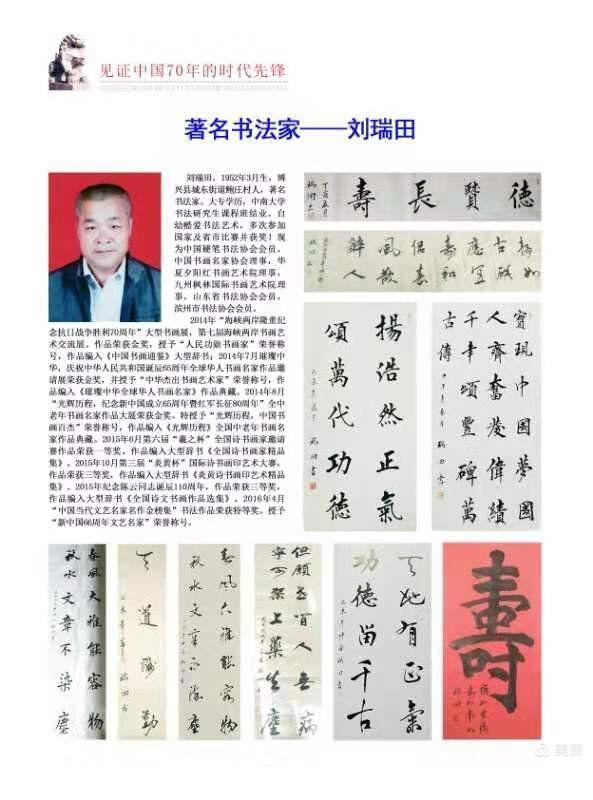 见证中国70年的时代先锋
著名书法家——刘瑞田
刘瑞田，1952年3月生，博
兴县城东街道鲍庄村人，著名
书法家。大专学历，中南大学
书法研究生课程班结业。自
幼酷爱书法艺术，多次参加
国家及省市比赛并获奖！现
为中国硬笔书法协会会员，
中国书画名家协会理事，华
夏夕阳红书画艺术院理事，
九州枫林国际书画艺术院理
事，山东省书法协会会员，
滨州市书法协会会员。
2014年“海峡两岸隆重纪
念抗日战争胜利70周年”大型书画展，第七届海峡两岸书画艺
术交流展。作品荣获金奖，授予“人民功勋书画家”荣誉称
号，作品编入《中国书画通鉴》大型辞书；2014年7月璀璨中
华，庆祝中华人民共和国诞辰65周年全球华人书画名家作品邀
请展荣获金奖，并授予“中华杰出书画艺术家”荣誉称号，作品
编入《璀璨中华全球华人书画名家》作品典藏。2014年8月
“光辉历程，纪念新中国成立65周年暨红军长征80周年”全中
老年书画名家作品大展荣获金奖。特授予“光辉历程，中国书
画百杰”荣誉称号，作品编入《光辉历程》全国中老年书画名
家作品典藏。2015年6月第六届“羲之杯”全国诗书画家邀请
赛作品荣获一等奖，作品编入大型辞书《全国诗书画家精品
集》。2015年10月第三届“炎黄杯”国际诗书画印艺术大赛，
作品荣获三等奖，作品编入大型辞书《炎黄诗书画印艺术精品
集》。2015年纪念陈云同志诞辰110周年，作品荣获三等奖，
作品编入大型辞书《全国诗文书画作品选集》。2016年4月
“中国当代文艺名家名作金榜集”书法作品荣获特等奖。授予
“新中国66周年文艺名家”荣誉称号。
德
賢
長
壽
實現中國夢國
人齊奮發偉績
千年頌豐碑萬
古傳
揚浩然正氣
頌萬代功德
春風大雅能容物
秋水文章不染塵
天道酬勤
春風大雅能容物
秋水文章不染塵
但願世間人無病
寧可架上藥生塵
天地有正氣
功德留千古
壽
美篇